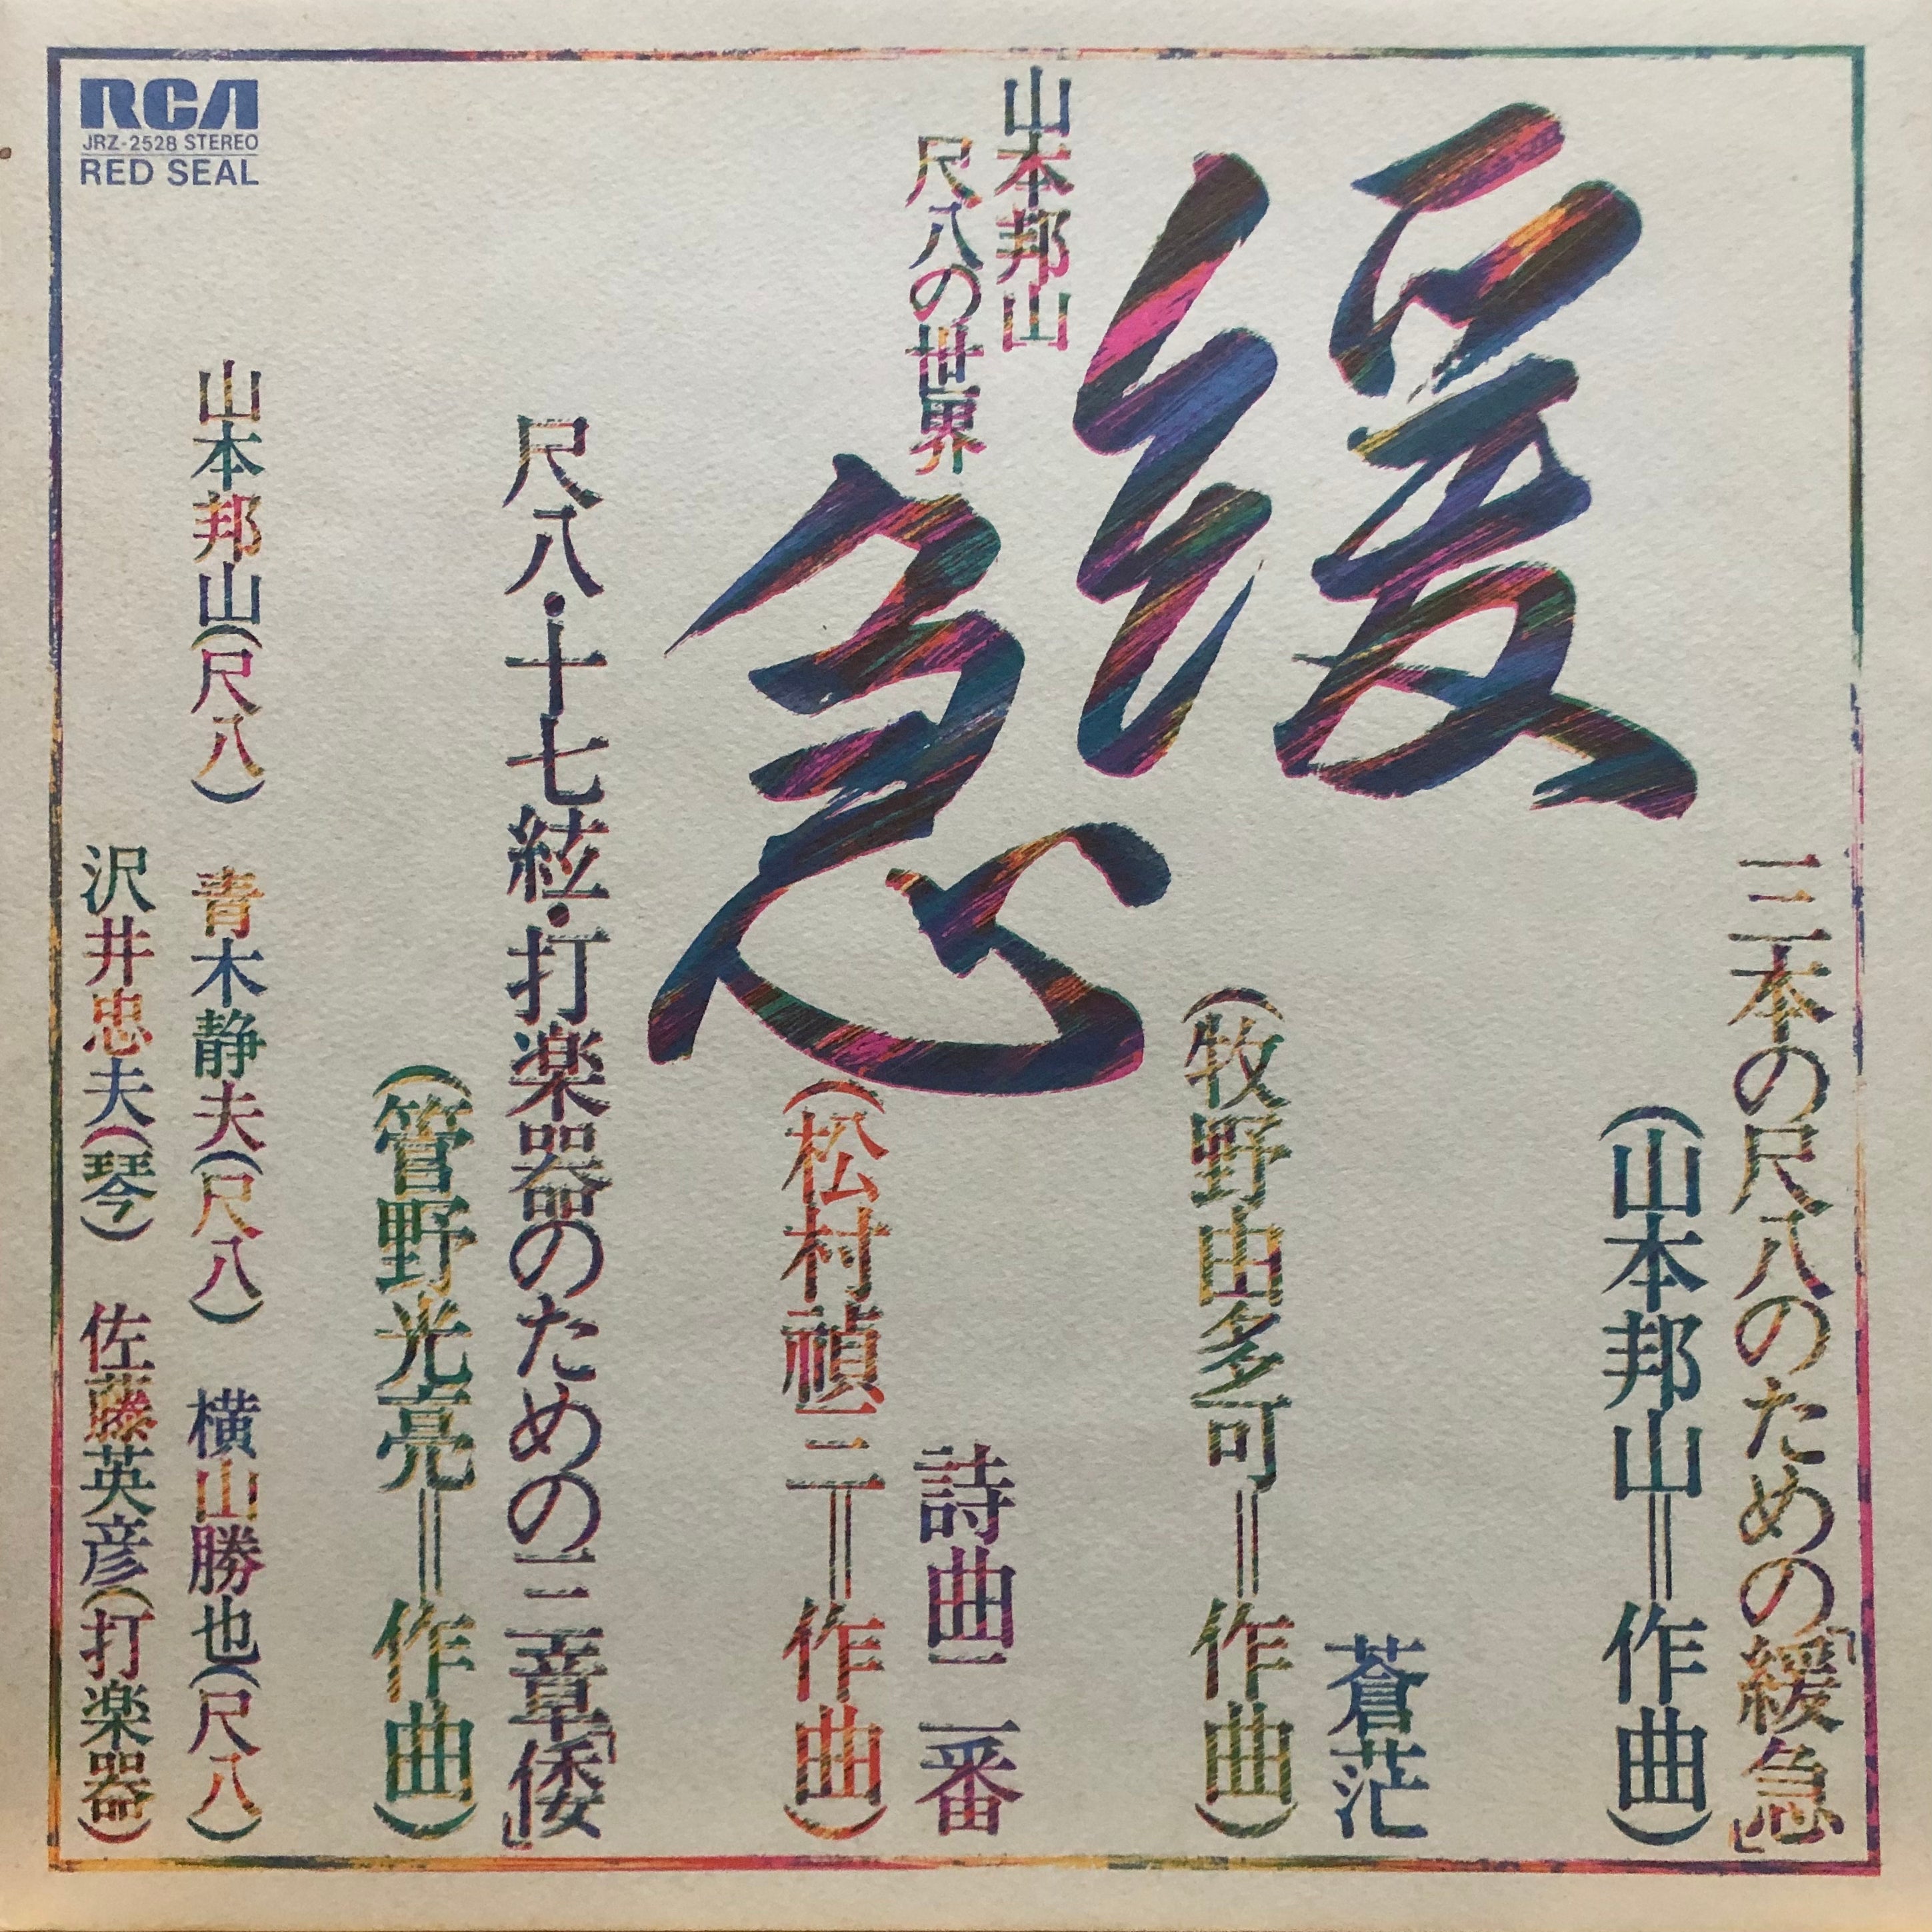 RCA
JRZ-2528 STEREO
RED SEAL
緩急
山本邦山
尺八の世界
三本の尺八のための「緩急」
(山本邦山=作曲)
蒼茫
(牧野由多可=作曲)
詩曲二番
(松村禎三=作曲)
尺八・十七絃・打楽器のための三章「倭」
(管野光亮=作曲)
山本邦山(尺八) 青木静夫(尺八) 横山勝也(尺八)
沢井忠夫(琴) 佐藤英彦(打楽器)